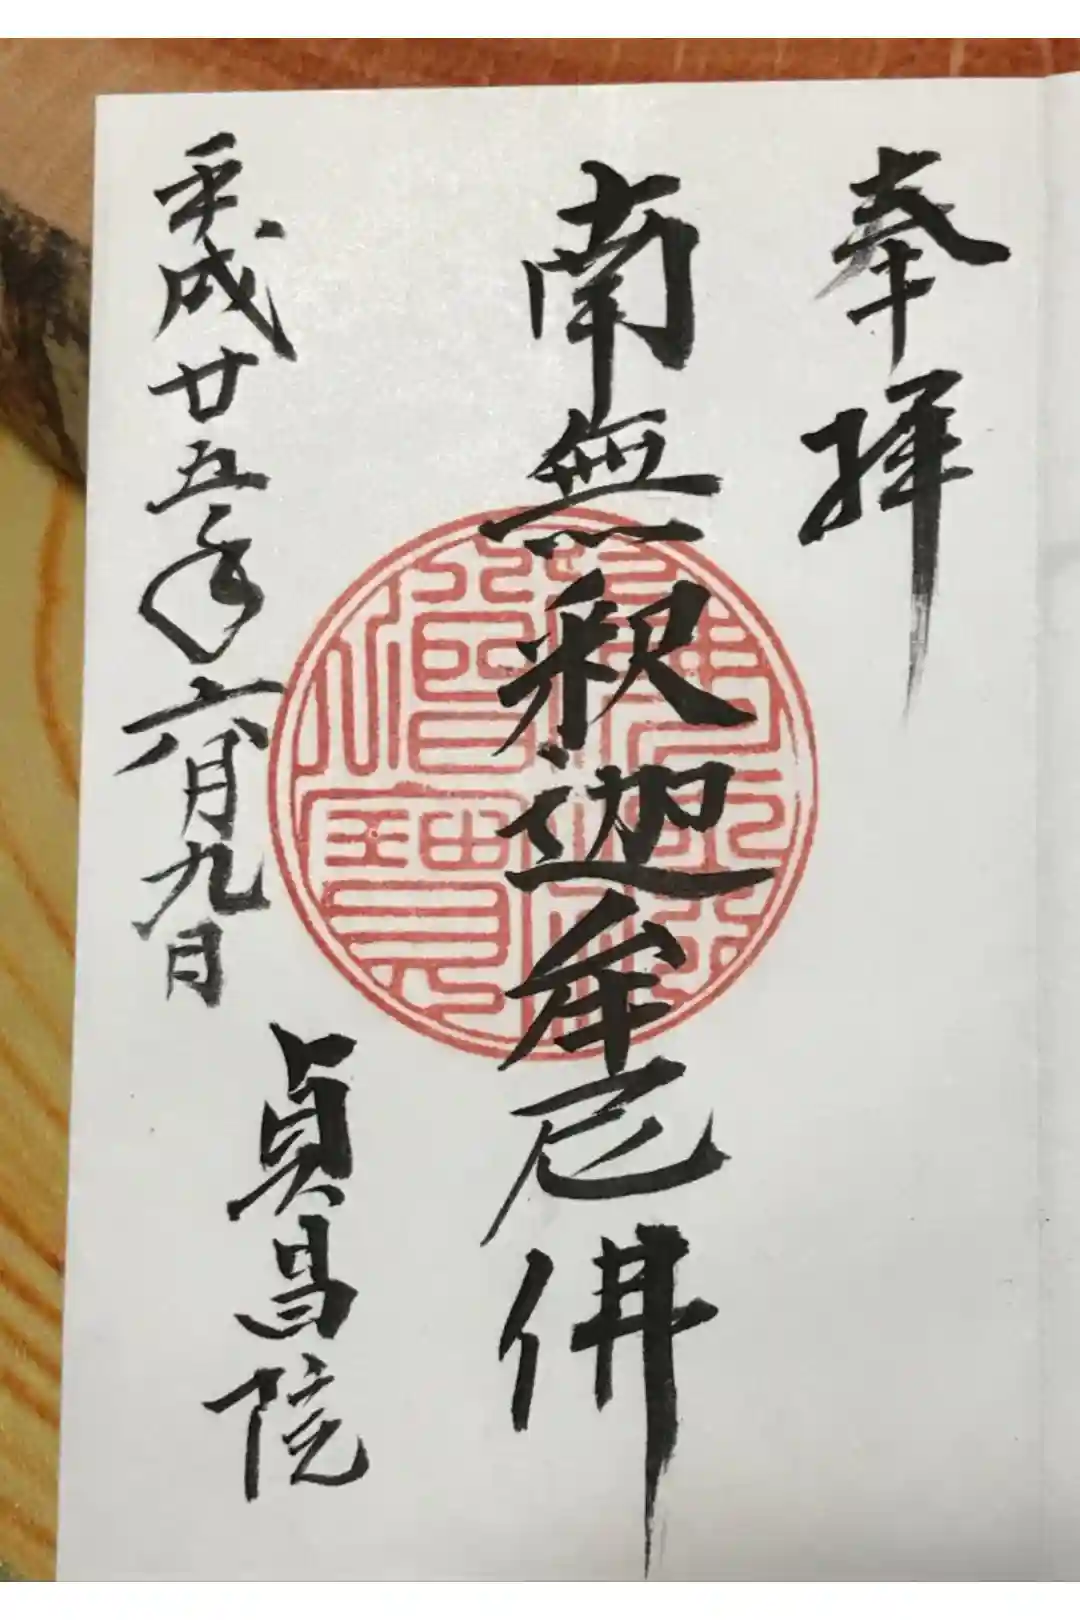 奉拝
南無釈迦牟尼佛
平成廿五年六月九日
貞昌院